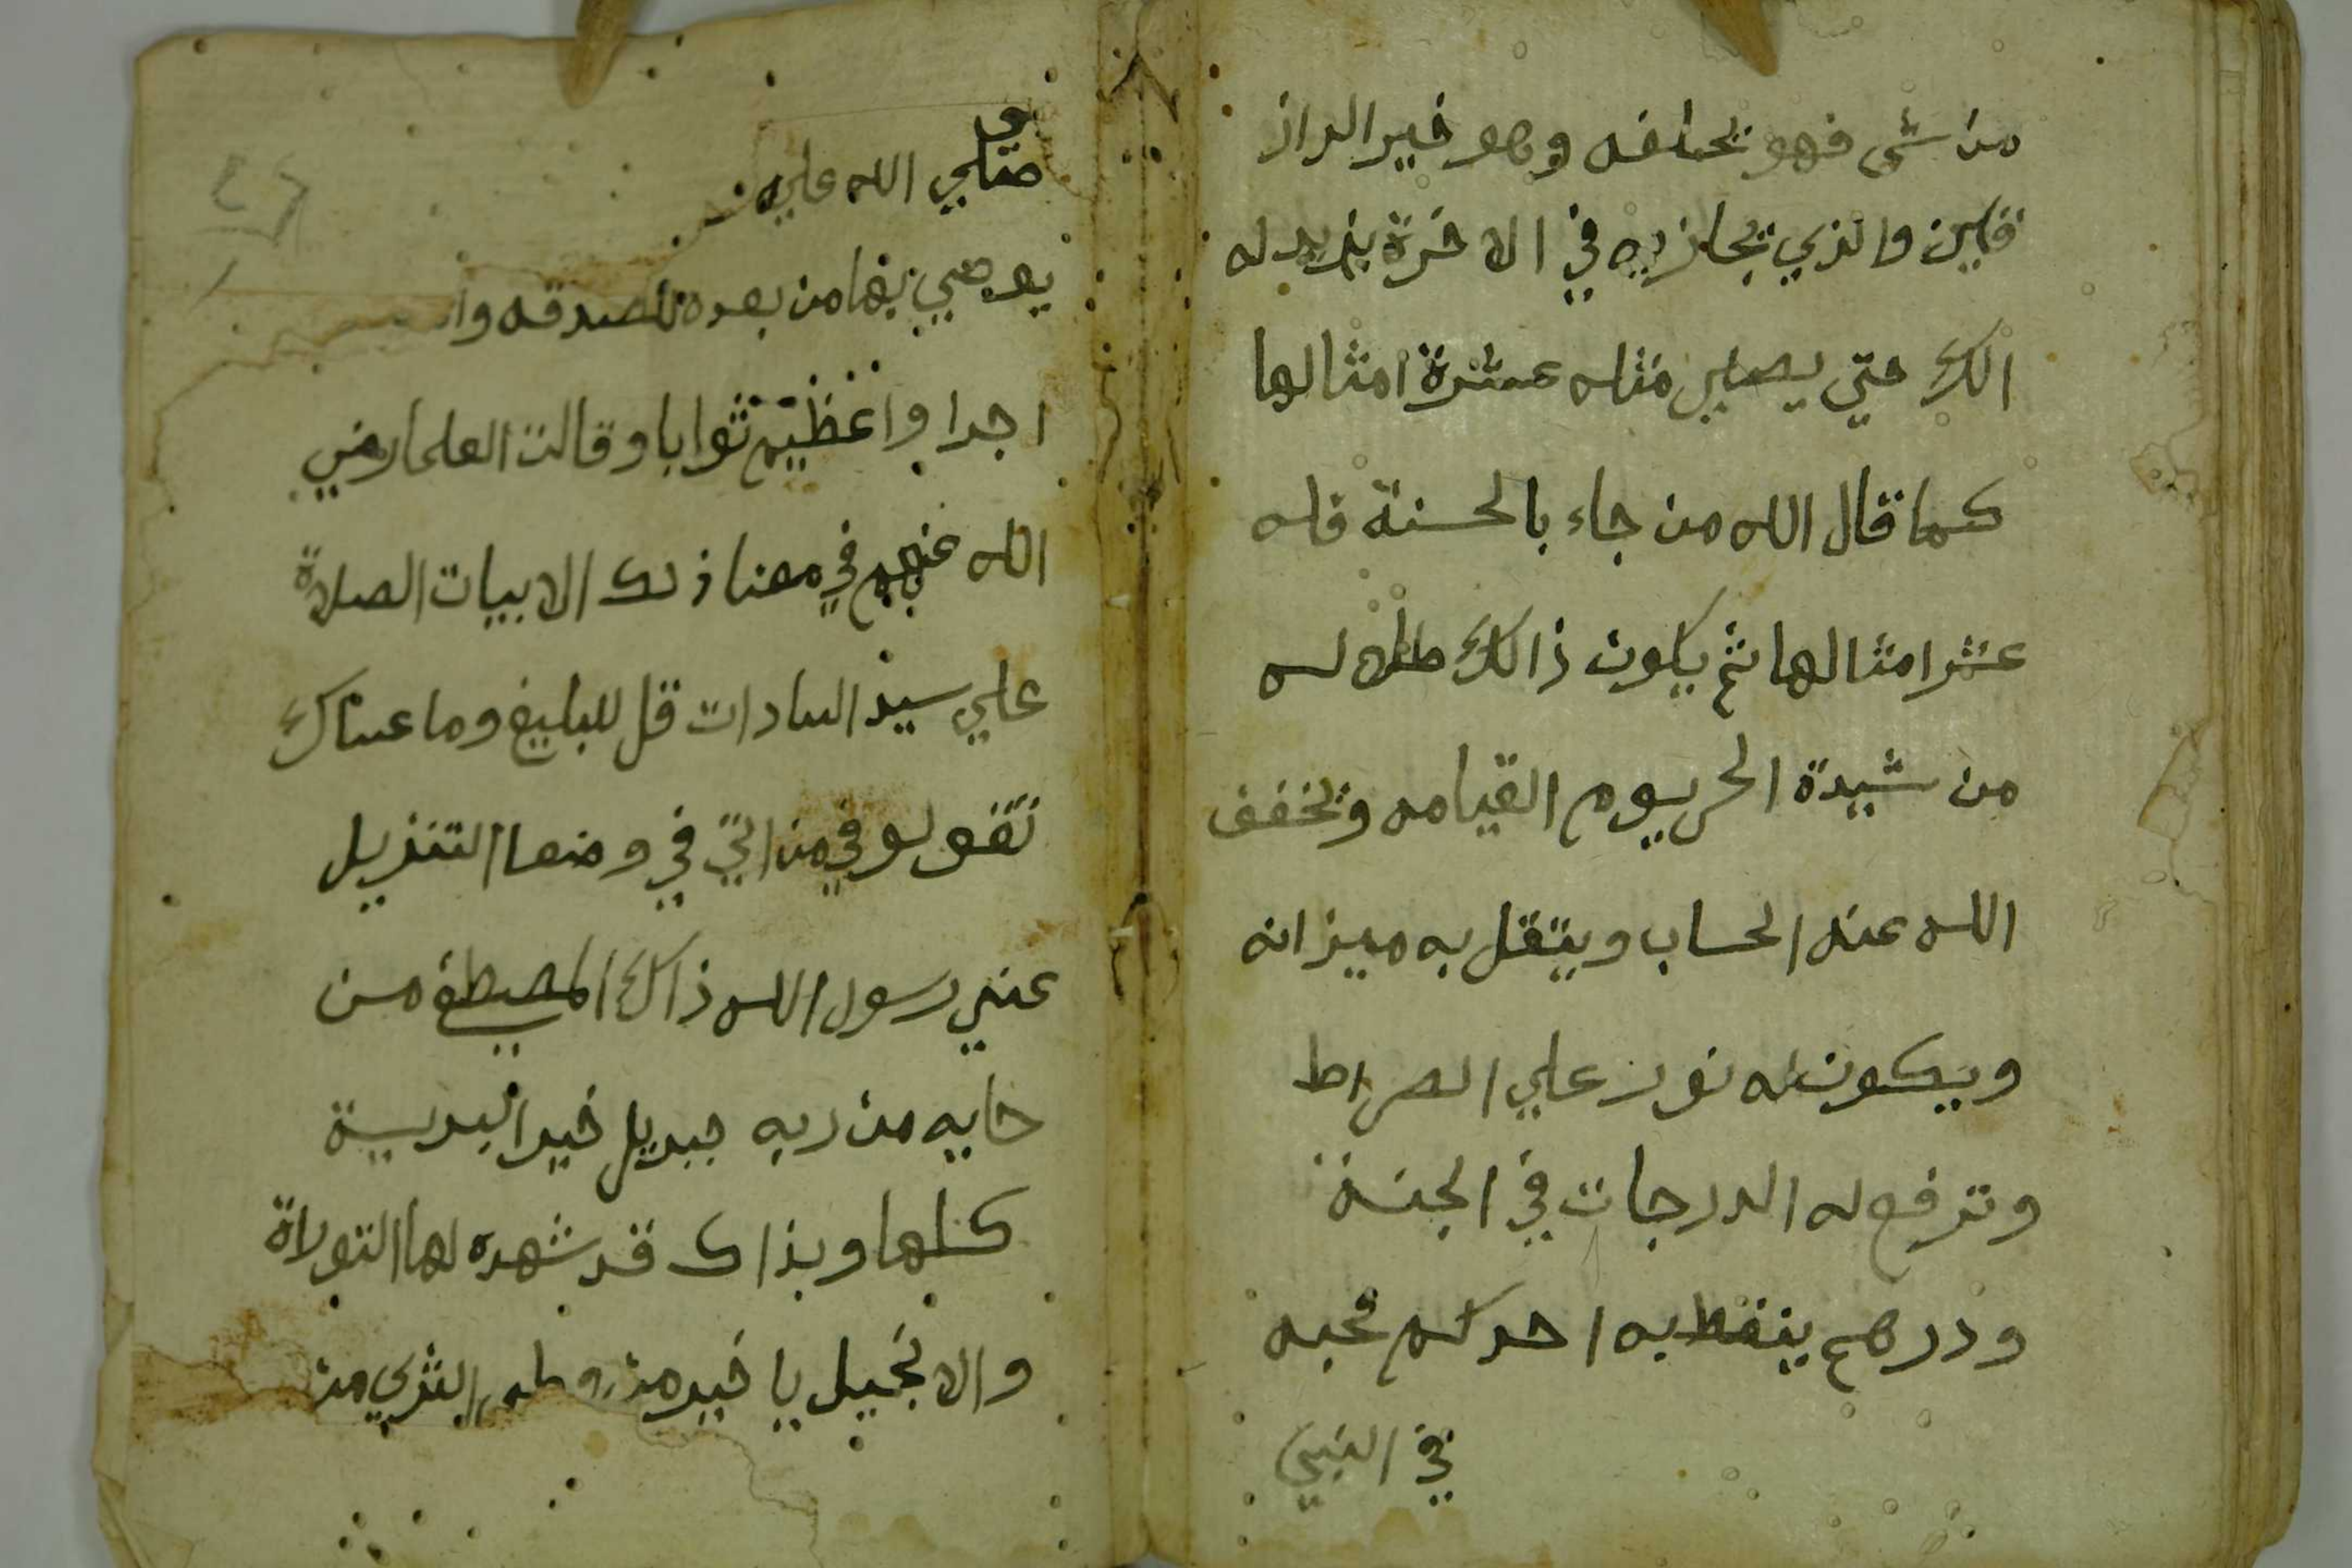 من شي فهو يخلفه وهو خير الراز
قين والذي يجازيه في الاخرة يزيد له
الك حتي يصير مثله عشرة امثالها
كما قال الله من جاء بالحسنة فله
عشر امثالها ثم يكون ذالك ظل له
من شيدة الحر يوم القيامه ويخفف
الله عنه الحساب ويثقل به ميزانه
ويكون له نور علي الصراط
وترفع له الدرجات في الجنة
ودرهم ينقط به احدكم محبه
في النبي
صلي الله عليه
يوصي بها من بعده للصدقه وا
اجرا واعظيم ثوابا وقالت العلما رضي
الله عنهم في معنا ذلك الابيات الصلاة
علي سيد السادات قل للبليغ وما عساك
تقول وفي من اتي في وصفا التنزيل
عني رسول الله ذاك المصطفي من
حابه من ربه جبريل خير البرية
كلها وبذاك قد شهده لها التوراة
والانجيل يا خير من وطي الثري من